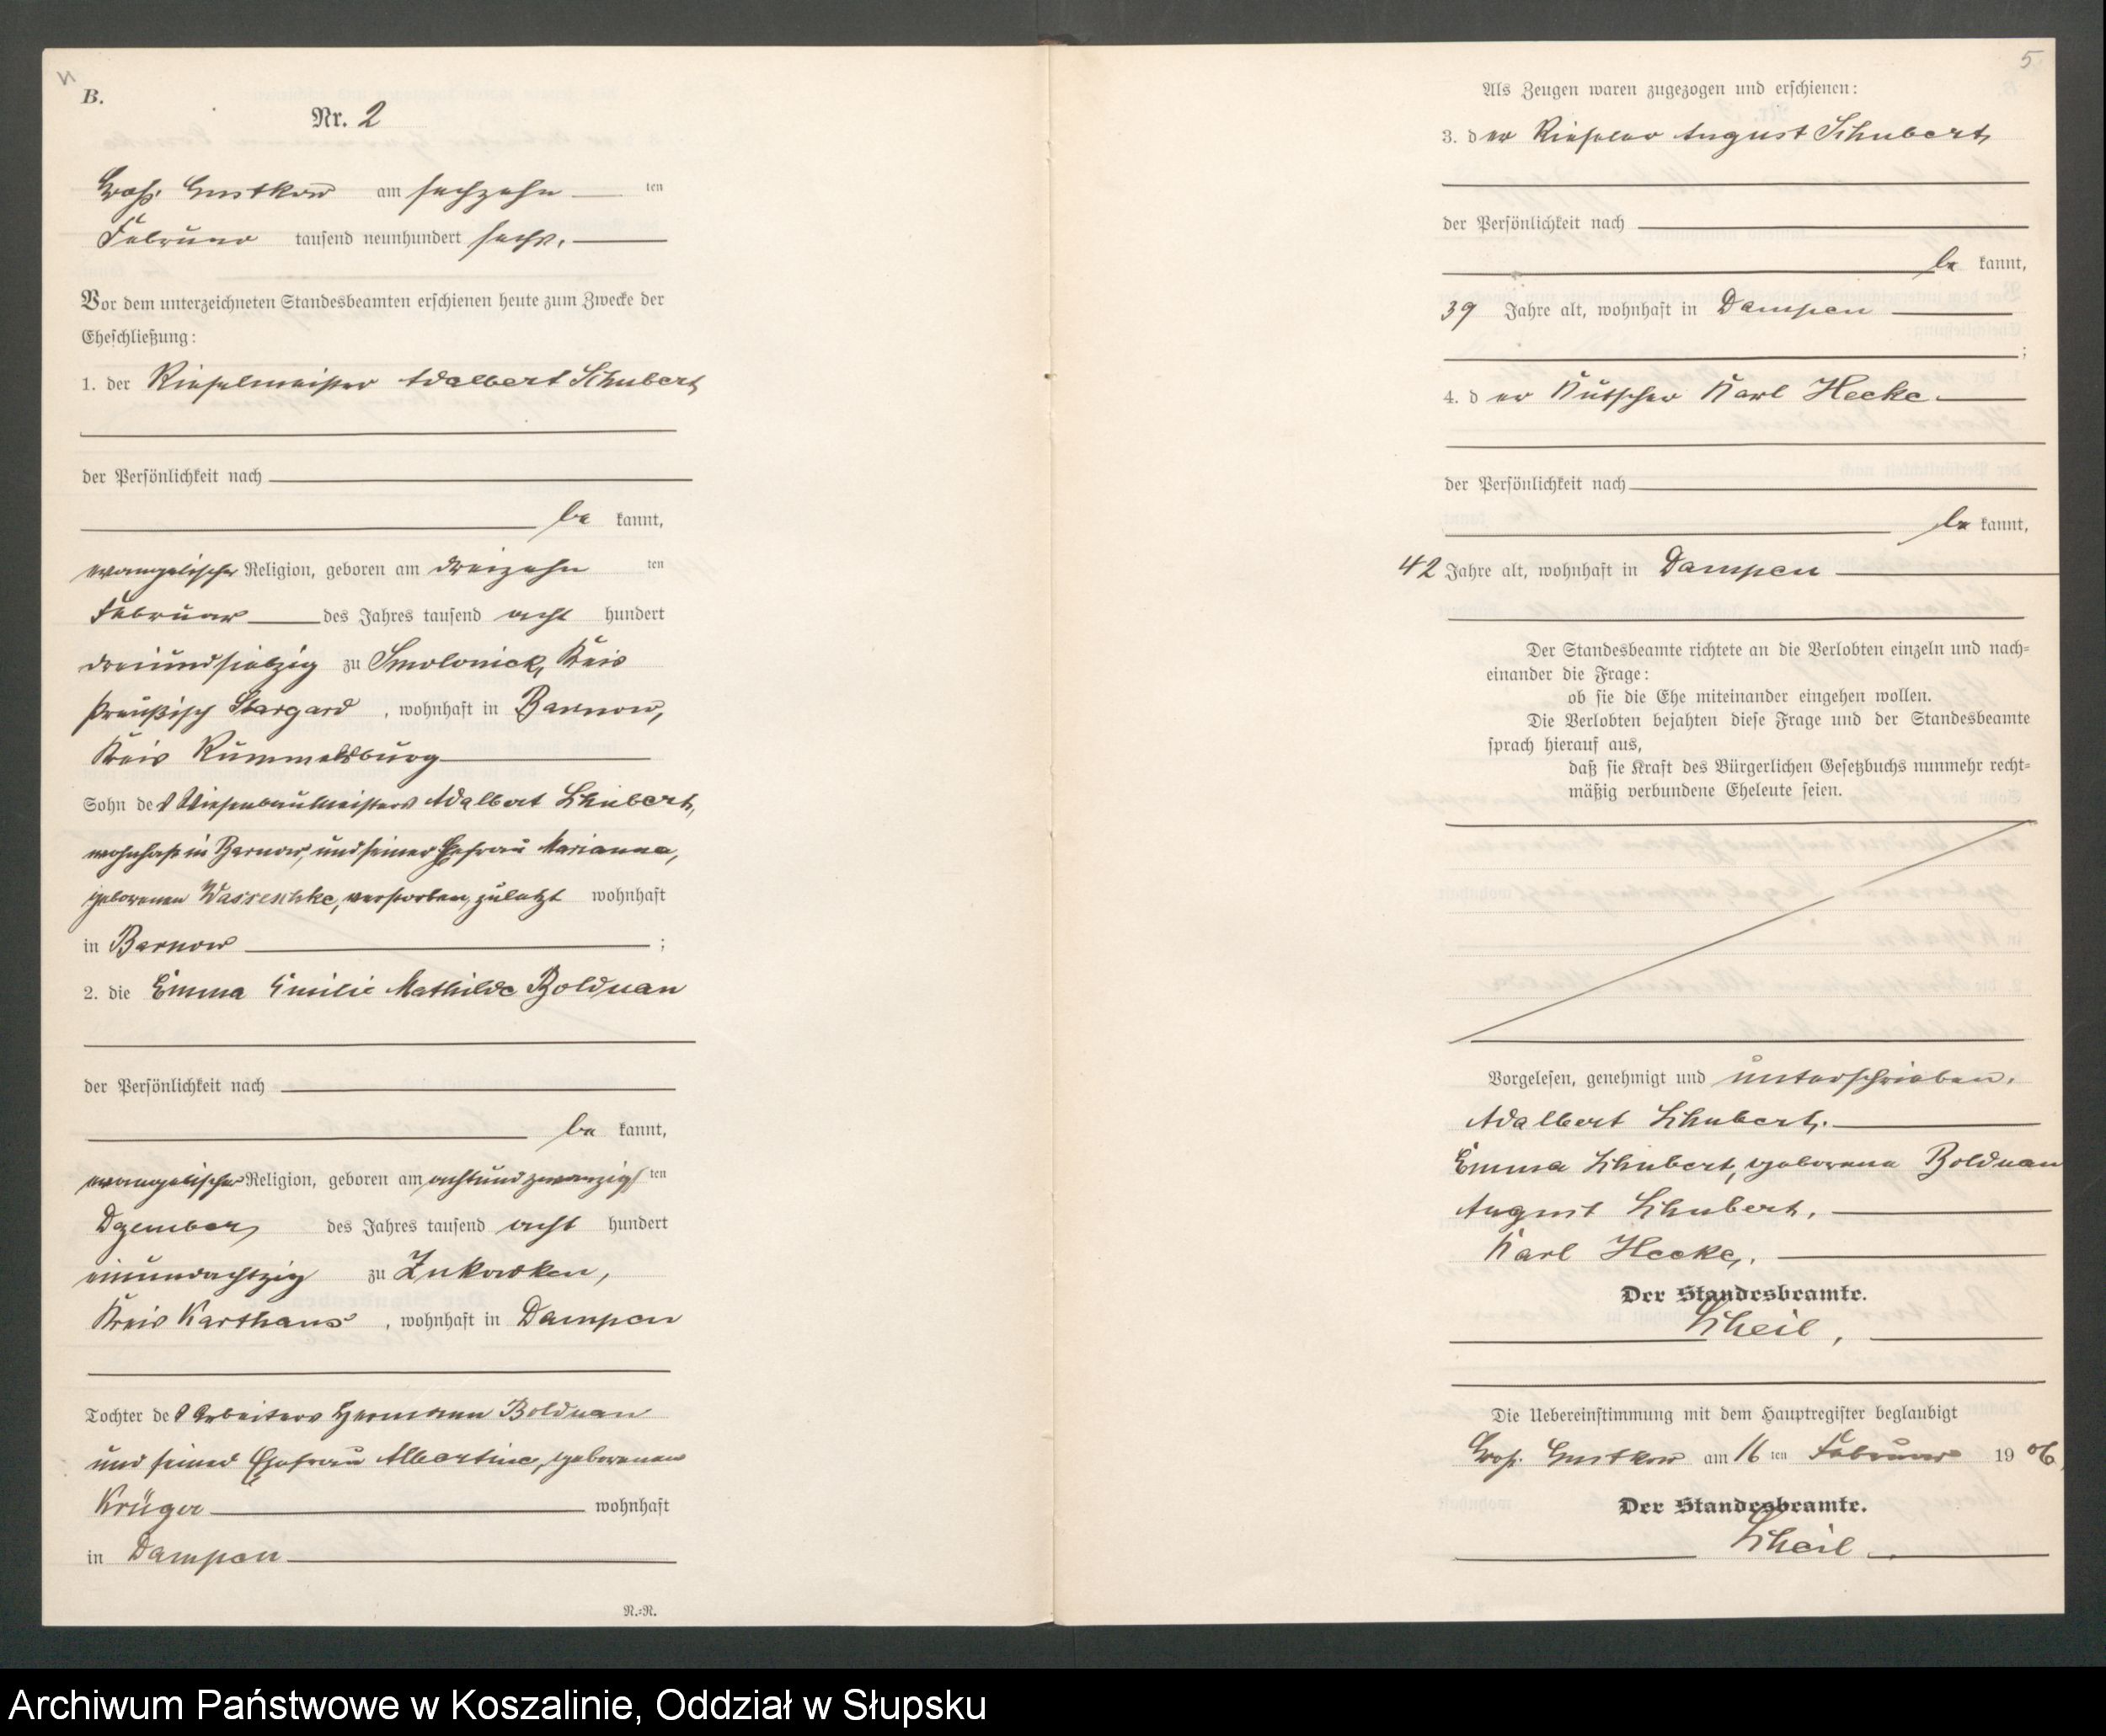 B.
Nr. 2
Groß Gustkow am sechzehn ten
Februar tausend neunhundert sechs.
Vor dem unterzeichneten Standesbeamten erschienen heute zum Zwecke der
Eheschließung:
1. der Rieselmeister Adalbert Schubert,
der Persönlichkeit nach
be kannt,
evangelischer Religion, geboren am dreizehn ten
Februar des Jahres tausend acht hundert
dreiundsiebzig zu Smolonick, Kreis
Preußisch Stargard, wohnhaft in Barnow,
Kreis Rummelsburg
Sohn des Wiesenbaumeisters Adalbert Schubert,
wohnhaft in Barnow, und seiner Ehefrau Marianna,
geborenen Wasreschke, verstorben, zuletzt wohnhaft
in Barnow ;
2. die Emma Emilie Mathilde Bolduan
der Persönlichkeit nach
be kannt,
evangelischer Religion, geboren am achtundzwanzigs ten
Dezember, des Jahres tausend acht hundert
einundachtzig zu Zukowken,
Kreis Karthaus, wohnhaft in Dampen
Tochter des Arbeiters Hermann Bolduan
und seiner Ehefrau Albertine, geborenen
Krüger wohnhaft
in Dampen
R.=R.
5
Als Zeugen waren zugezogen und erschienen:
3. der Riesler August Schubert,
der Persönlichkeit nach
be kannt,
39 Jahre alt, wohnhaft in Dampen
;
4. der Kutscher Karl Hecke
der Persönlichkeit nach
be kannt,
42 Jahre alt, wohnhaft in Dampen
Der Standesbeamte richtete an die Verlobten einzeln und nach=
einander die Frage:
ob sie die Ehe miteinander eingehen wollen.
Die Verlobten bejahten diese Frage und der Standesbeamte
sprach hierauf aus,
daß sie Kraft des Bürgerlichen Gesetzbuchs nunmehr recht=
mäßig verbundene Eheleute seien.
Vorgelesen, genehmigt und unterschrieben.
Adalbert Schubert.
Emma Schubert, geborene Bolduan
August Schubert.
Karl Hecke.
Der Standesbeamte.
Scheil,
Die Uebereinstimmung mit dem Hauptregister beglaubigt
Groß Gustkow am 16 ten Februar 19 06
Der Standesbeamte.
Scheil
Archiwum Państwowe w Koszalinie, Oddział w Słupsku